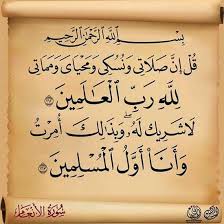 بِسْمِ اللَّهِ الرَّحْمَٰنِ الرَّحِيمِ
قُلْ إِنَّ صَلَاتِي وَنُسُكِي وَمَحْيَايَ وَمَمَاتِي
لِلَّهِ رَبِّ الْعَالَمِينَ ١٦٢
لَا شَرِيكَ لَهُ وَبِذَٰلِكَ أُمِرْتُ
وَأَنَا أَوَّلُ الْمُسْلِمِينَ ١٦٣
سُورَةُ الْأَنْعَامِ